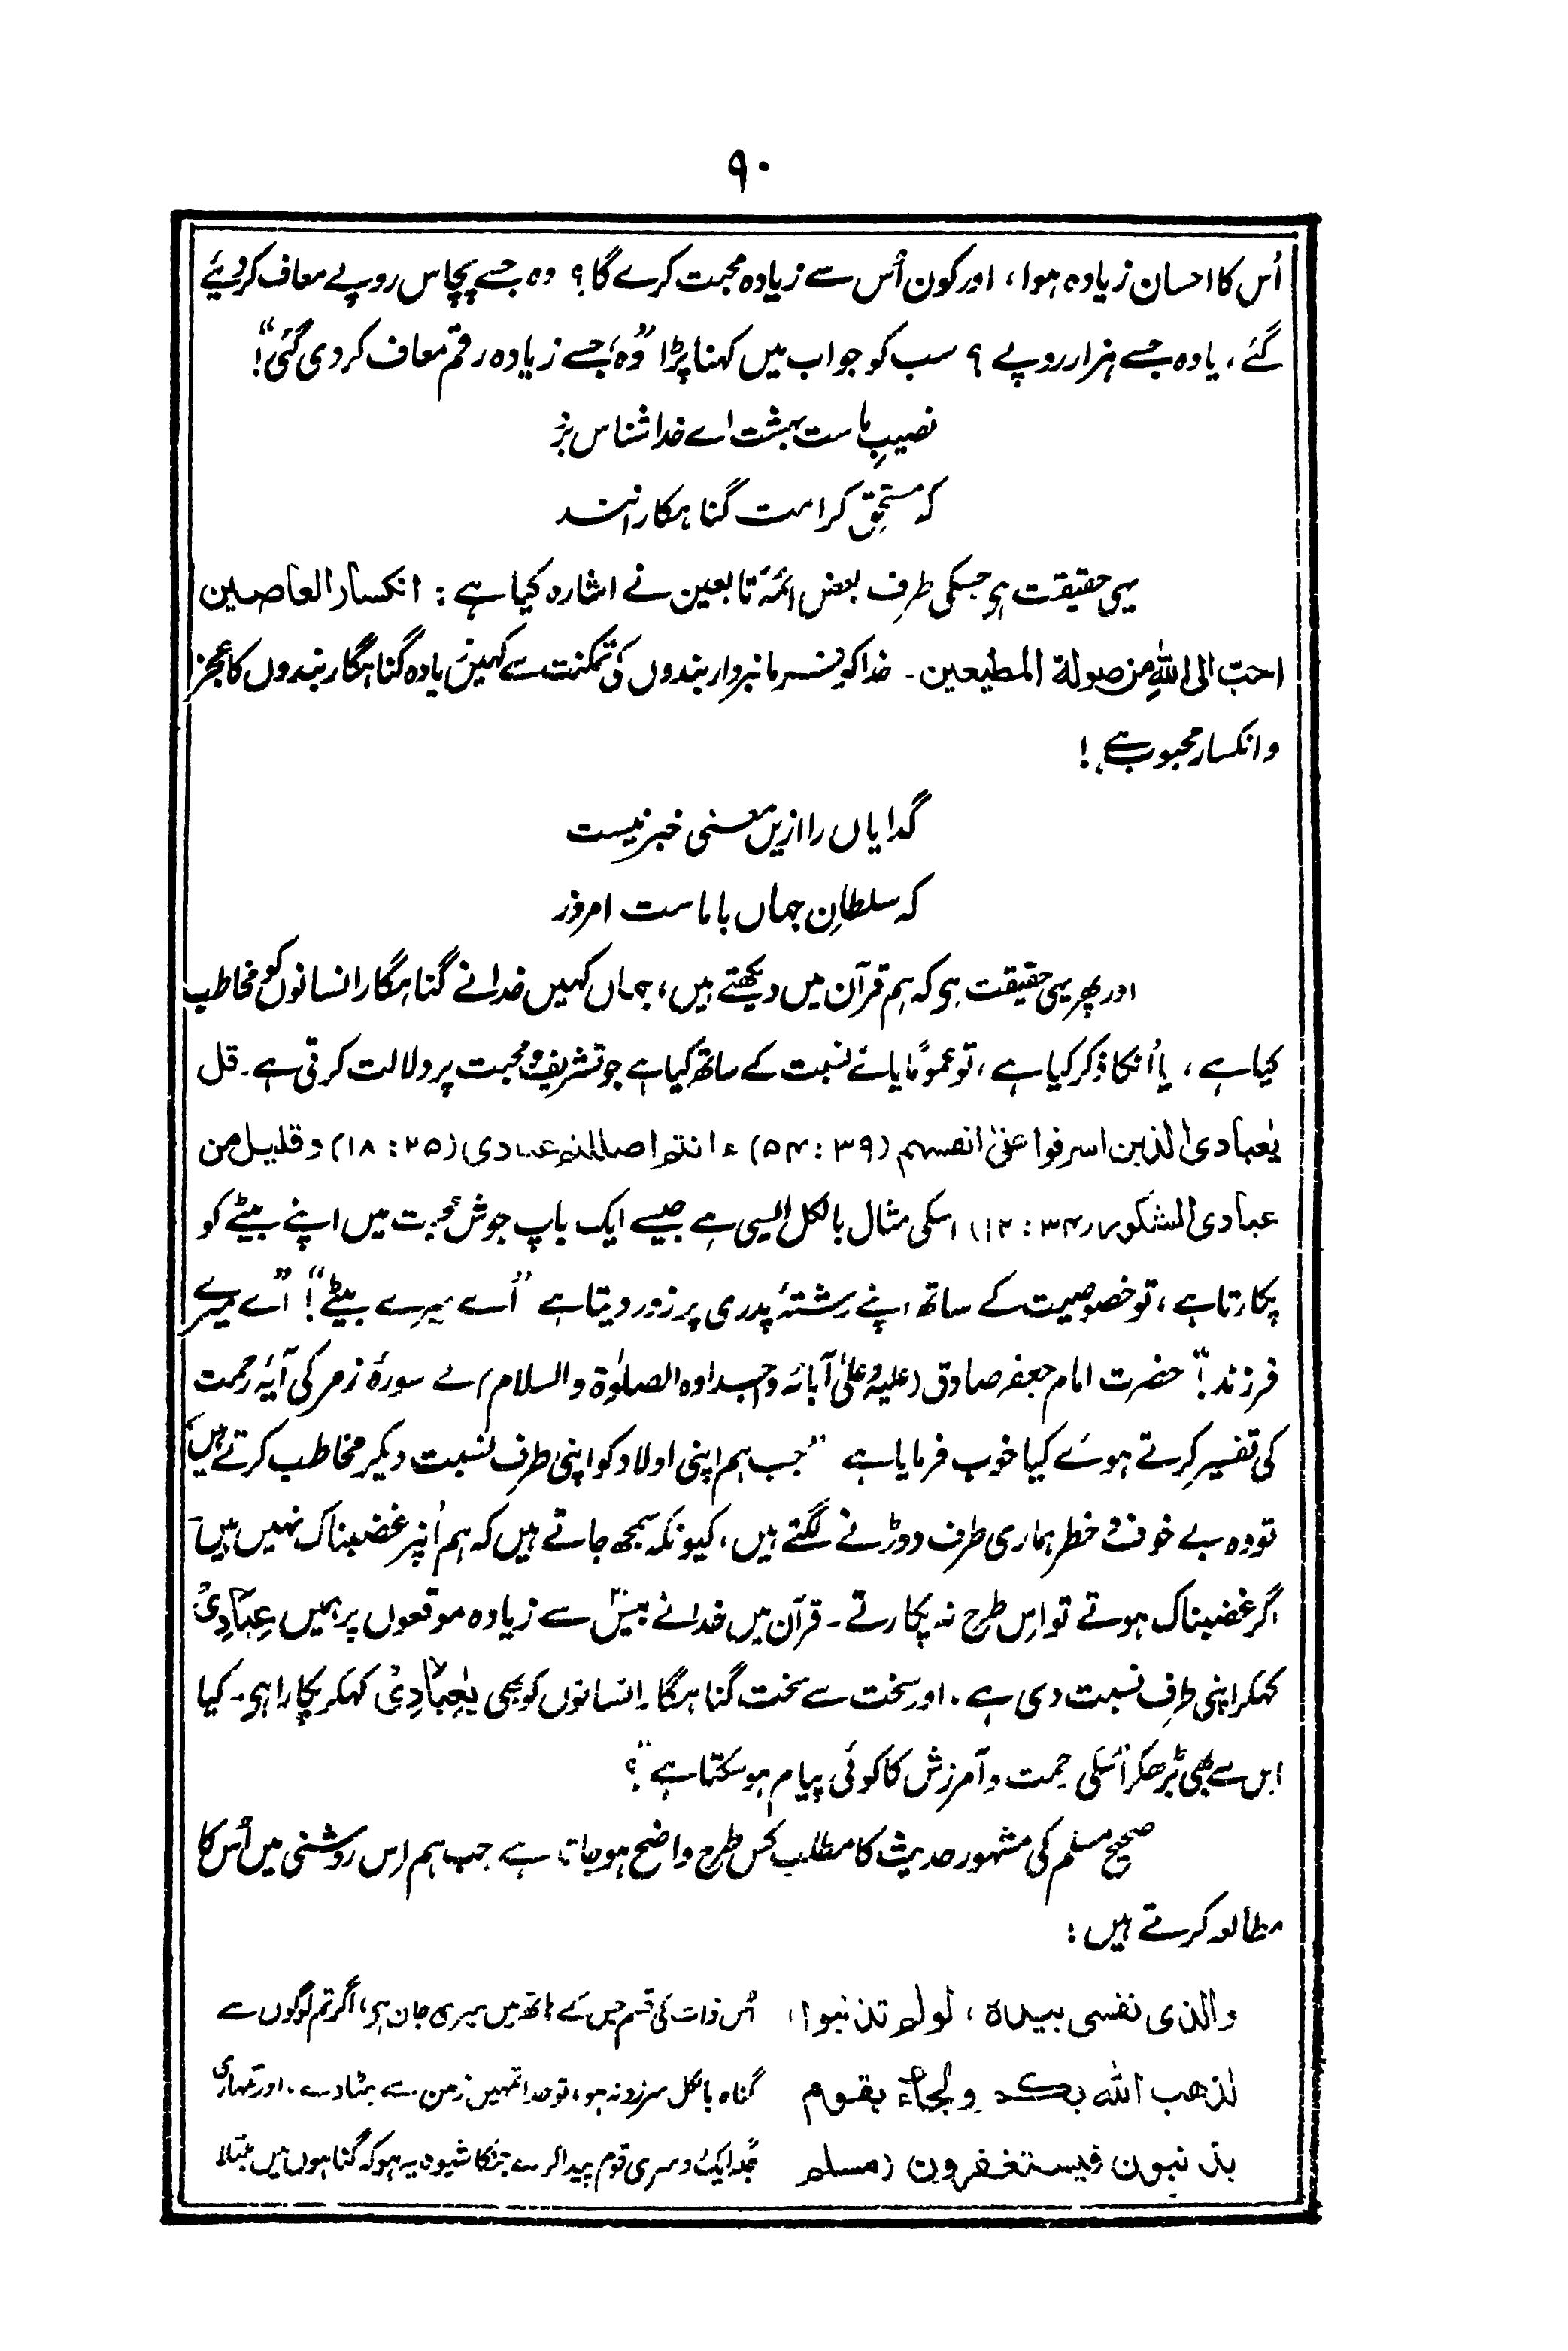 ۹۰
اُس کا احسان زیادہ ہوا، اور کون اُس سے زیادہ محبت کرے گا؟ وہ جسے پچاس روپے معاف کر دیئے
گئے، یا وہ جسے ہزار روپے؟ سب کو جواب میں کہنا پڑا "وہ، جسے زیادہ رقم معاف کر دی گئی"!
نصیبِ ماست بہشت اے خدا شناس برَو
کہ مستحقِ کرامت گناہگارانند
یہی حقیقت ہی جسکی طرف بعض ائمۂ تابعین نے اشارہ کیا ہے: انکسار العاصین
احبّ الی اللہِ من صولة المطیعین۔ خدا کو فرمانبردار بندوں کی تمکنت سے کہیں زیادہ گناہگار بندوں کا عجز
و انکسار محبوب ہے!
گدایاں را ازیں معنی خبر نیست
کہ سلطانِ جہاں با ماست امروز
اور پھر یہی حقیقت ہی کہ ہم قرآن میں دیکھتے ہیں، جہاں کہیں خدا نے گناہگار انسانوں کو مخاطب
کیا ہے، یا اُنکا ذکر کیا ہے، تو عموماً یائے نسبت کے ساتھ کیا ہے جو تشریف و محبت پر دلالت کرتی ہے۔ قل
یٰعبادی الذین اسرفوا علیٰ انفسہم (۳۹: ۵۴) ءانتم اضللتم عبادی (۲۵: ۱۸) و قلیل من
عبادی الشکور (۳۴: ۱۲) اسکی مثال بالکل ایسی ہے جیسے ایک باپ جوش محبت میں اپنے بیٹے کو
پکارتا ہے، تو خصوصیت کے ساتھ اپنے رشتۂ پدری پر زور دیتا ہے "اے میرے بیٹے"! "اے میرے
فرزند!" حضرت امام جعفر صادق (علیہ و علیٰ آبائہ و اجدادہ الصلوٰۃ والسلام) نے سورۂ زمر کی آیۂ رحمت
کی تفسیر کرتے ہوئے کیا خوب فرمایا ہے "جب ہم اپنی اولاد کو اپنی طرف نسبت دیکر مخاطب کرتے ہیں،
تو وہ بے خوف و خطر ہماری طرف دوڑنے لگتے ہیں، کیونکہ سمجھ جاتے ہیں کہ ہم اُنپر غضبناک نہیں ہیں۔
اگر غضبناک ہوتے تو اِس طرح نہ پکارتے۔ قرآن میں خدا نے بیس سے زیادہ موقعوں پر ہمیں عِبَادِیْ
کہکر اپنی طرف نسبت دی ہے۔ اور سخت سے سخت گناہگار انسانوں کو بھی یٰعِبَادِیْ کہکر پکارا ہی۔ کیا
اِس سے بھی بڑھکر اُسکی رحمت و آمرزش کا کوئی پیام ہو سکتا ہے"؟
صحیح مسلم کی مشہور حدیث کا مطلب کس طرح واضح ہو جاتا ہے جب ہم اِس روشنی میں اُس کا
مطالعہ کرتے ہیں:
والذی نفسی بیدہ، لو لم تذنبوا، اُس ذات کی قسم جس کے ہاتھ میں میری جان ہی، اگر تم لوگوں سے
لذھب اللہ بکم ولجاء بقوم گناہ بالکل سرزد نہ ہو، تو خدا تمہیں زمین سے ہٹا دے، اور تمہاری
یذنبون فیستغفرون (مسلم جگہ ایک دوسری قوم پیدا کرے جنکا شیوہ یہ ہو کہ گناہوں میں مبتلا